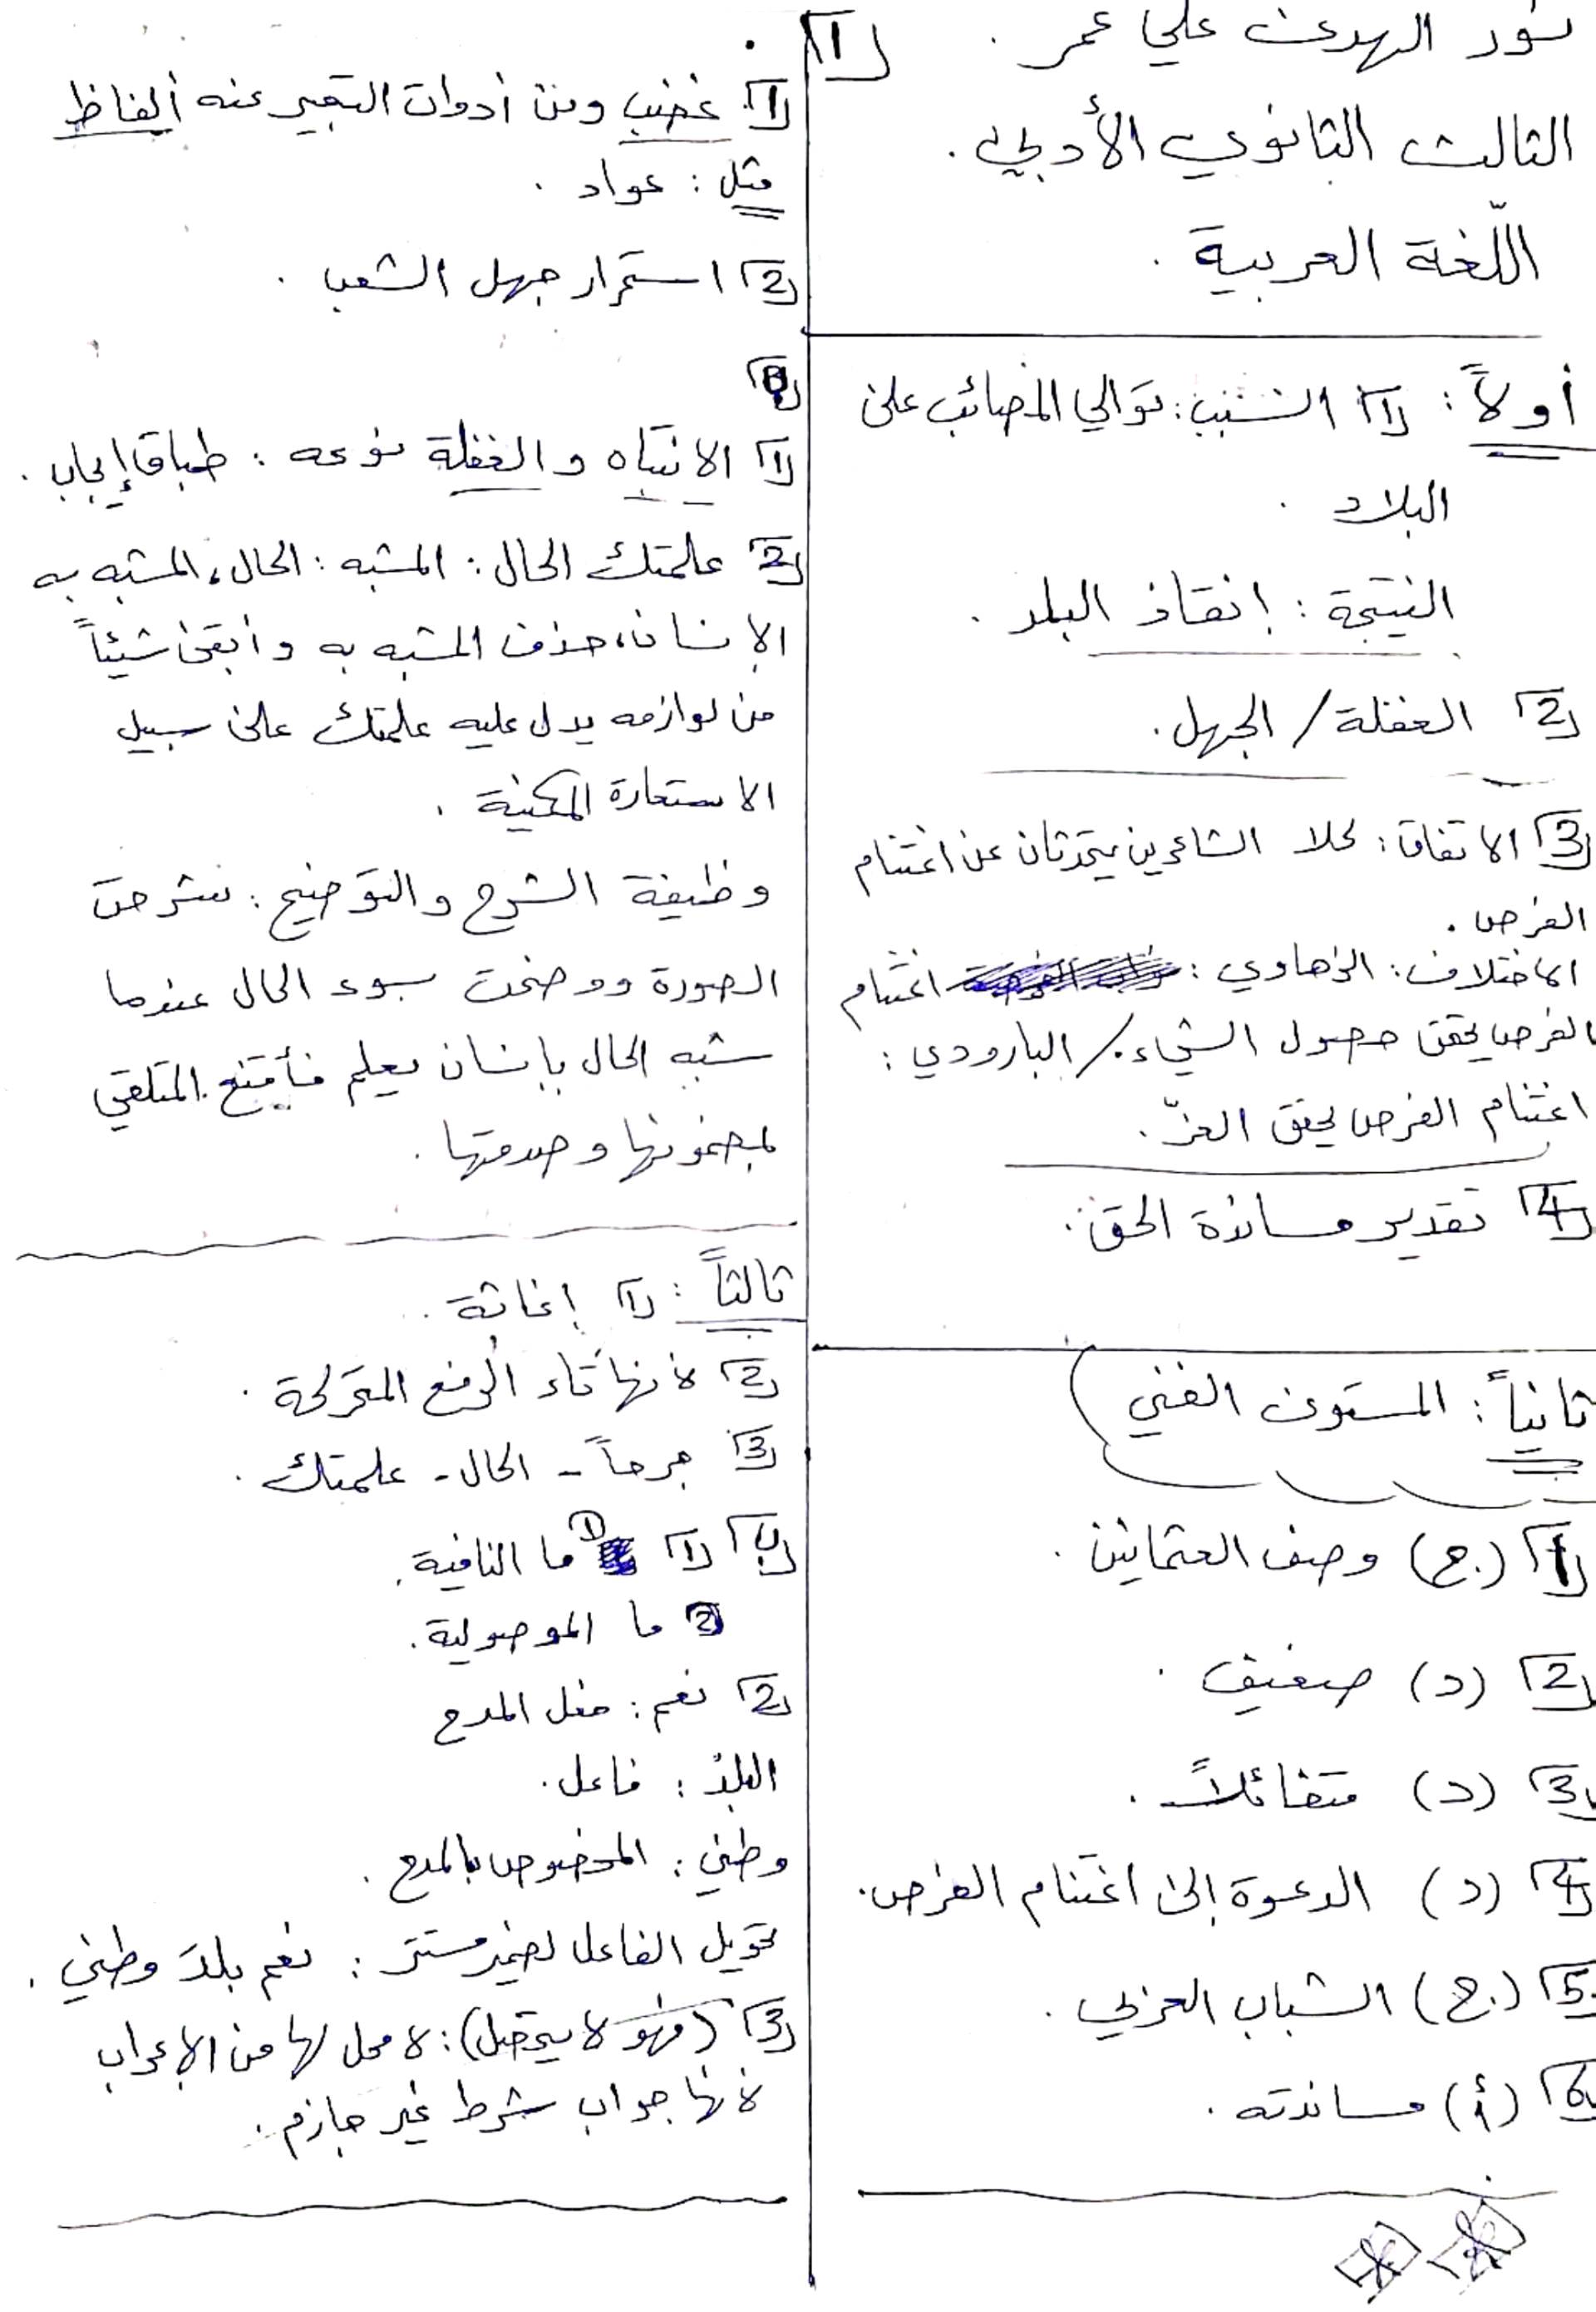 نور الهدى علي عمر .
الثالث الثانوي الأدبي .
اللّغة العربية .
أولاً : 1 السبب : توالي المصائب على
البلاد .
النتيجة : إنقاذ البلد .
2 الغفلة / الجهل .
3 الاتفاق : كلا الشاعرين يتحدثان عن اغتنام
الفرص .
الاختلاف : الزهاوي : اغتنام
الفرص يحقق حصول الشيء . / البارودي :
اغتنام الفرص يحقق العزّ .
4 تقدير مساندة الحق .
ثانياً : المستوى الفني
1 (ج) وصف العثمانيين .
2 (د) ضعيف .
3 (د) متفائلاً .
4 (د) الدعوة إلى اغتنام الفرص .
5 (ج) الشباب العربي .
6 (أ) مساندته .
1
1 غضب ومن أدوات التعبير عنه ألفاظ
مثل : عواد .
2 استمرار جهل الشعب .
1 الانتباه والغفلة نوعه : طباق إيجاب .
2 علمتك الحال : المشبه : الحال، المشبه به
الإنسان، حذف المشبه به وأبقى شيئاً
من لوازمه يدل عليه علمتك على سبيل
الاستعارة المكنية .
وظيفة الشرح والتوضيح : شرحت
الصورة ووضحت سوء الحال عندما
شبه الحال بإنسان يعلم فأقنع المتلقي
بمضمونها وصدقها .
ثالثاً : 1 إغاثة .
2 لأنها تاء الرفع المتحركة .
3 جرحاً - الحال - علمتك .
ب 1 1 ما النافية .
2 ما الموصولية .
2 نعم : فعل المدح
البلدُ : فاعل .
وطني : المخصوص بالمدح .
تحويل الفاعل لضمير مستتر : نعم بلداً وطني .
3 (فهو لا يحصل) : لا محل لها من الإعراب
لأنها جواب شرط غير جازم .